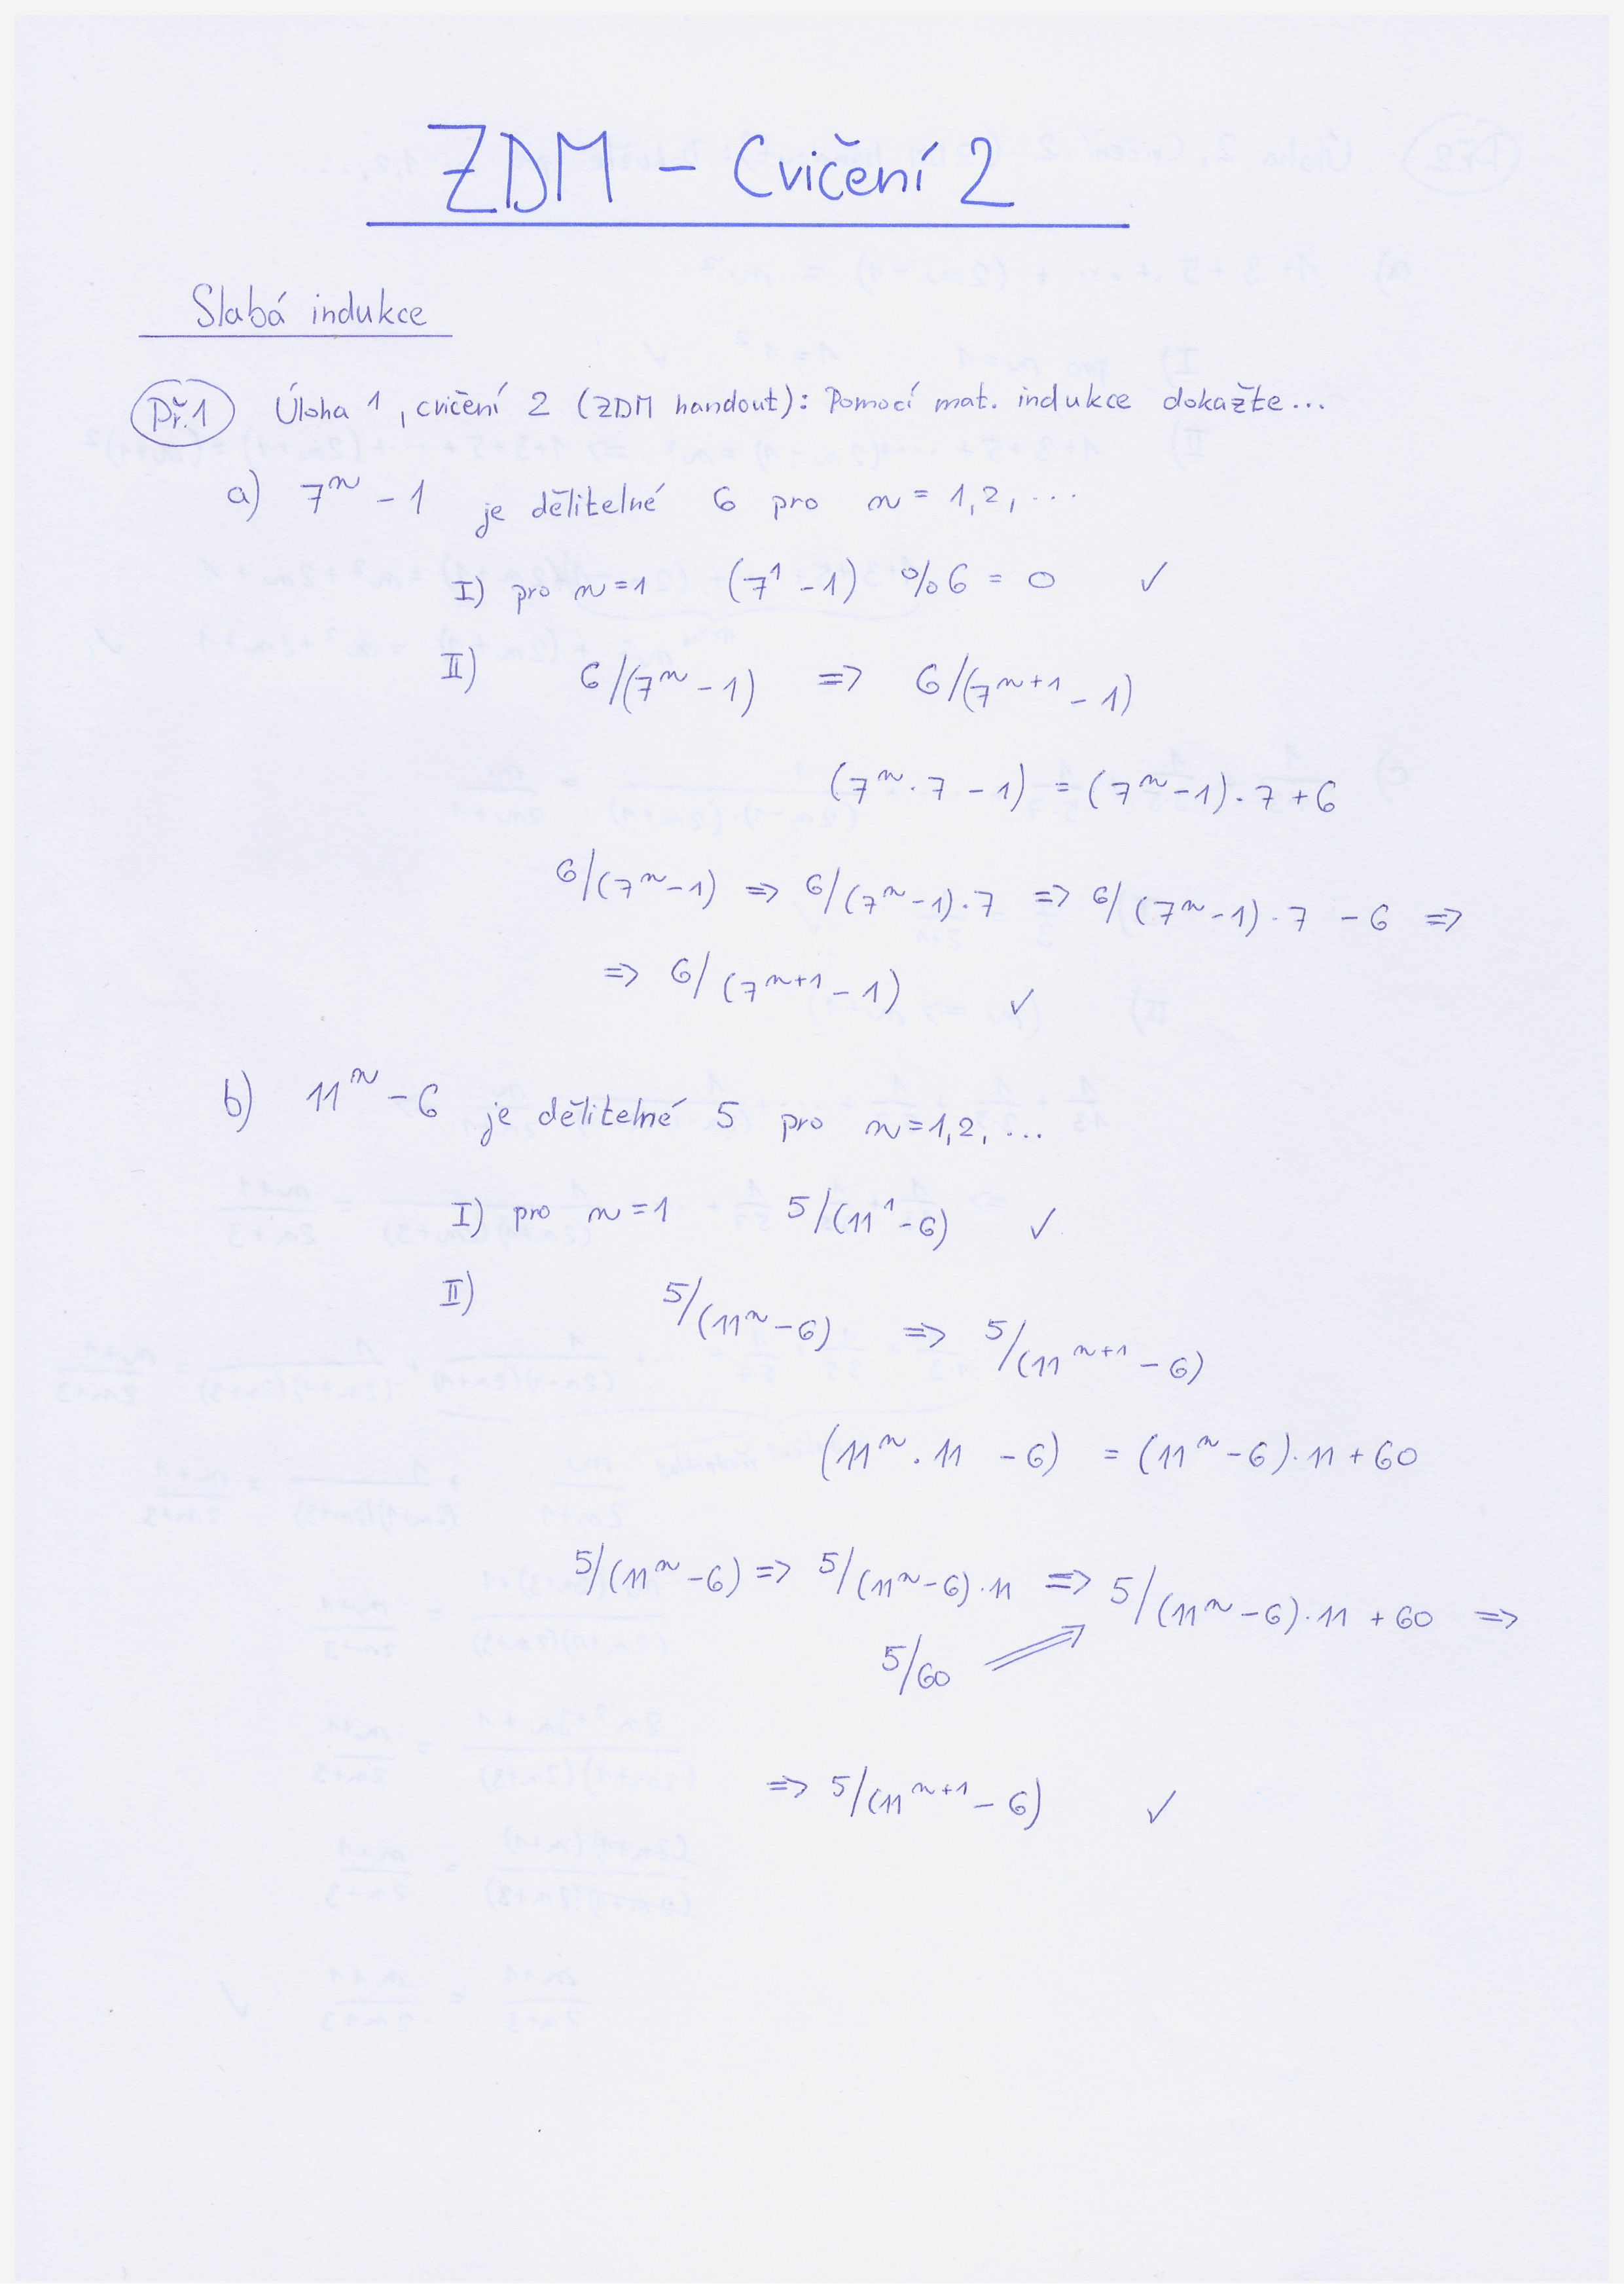 ZDM - Cvičení 2
Slabá indukce
Př.1 Úloha 1, cvičení 2 (ZDM handout): Pomocí mat. indukce dokažte...
a) 7^n - 1 je dělitelné 6 pro n = 1,2,...
I) pro n=1 (7^1 - 1) % 6 = 0 ✓
II) 6/(7^n - 1) => 6/(7^{n+1} - 1)
(7^n · 7 - 1) = (7^n - 1) · 7 + 6
6/(7^n - 1) => 6/(7^n - 1) · 7 => 6/(7^n - 1) · 7 - 6 =>
=> 6/(7^{n+1} - 1) ✓
b) 11^n - 6 je dělitelné 5 pro n=1,2,...
I) pro n=1 5/(11^1 - 6) ✓
II) 5/(11^n - 6) => 5/(11^{n+1} - 6)
(11^n · 11 - 6) = (11^n - 6) · 11 + 60
5/(11^n - 6) => 5/(11^n - 6) · 11 => 5/(11^n - 6) · 11 + 60 =>
5/60 =>
=> 5/(11^{n+1} - 6) ✓